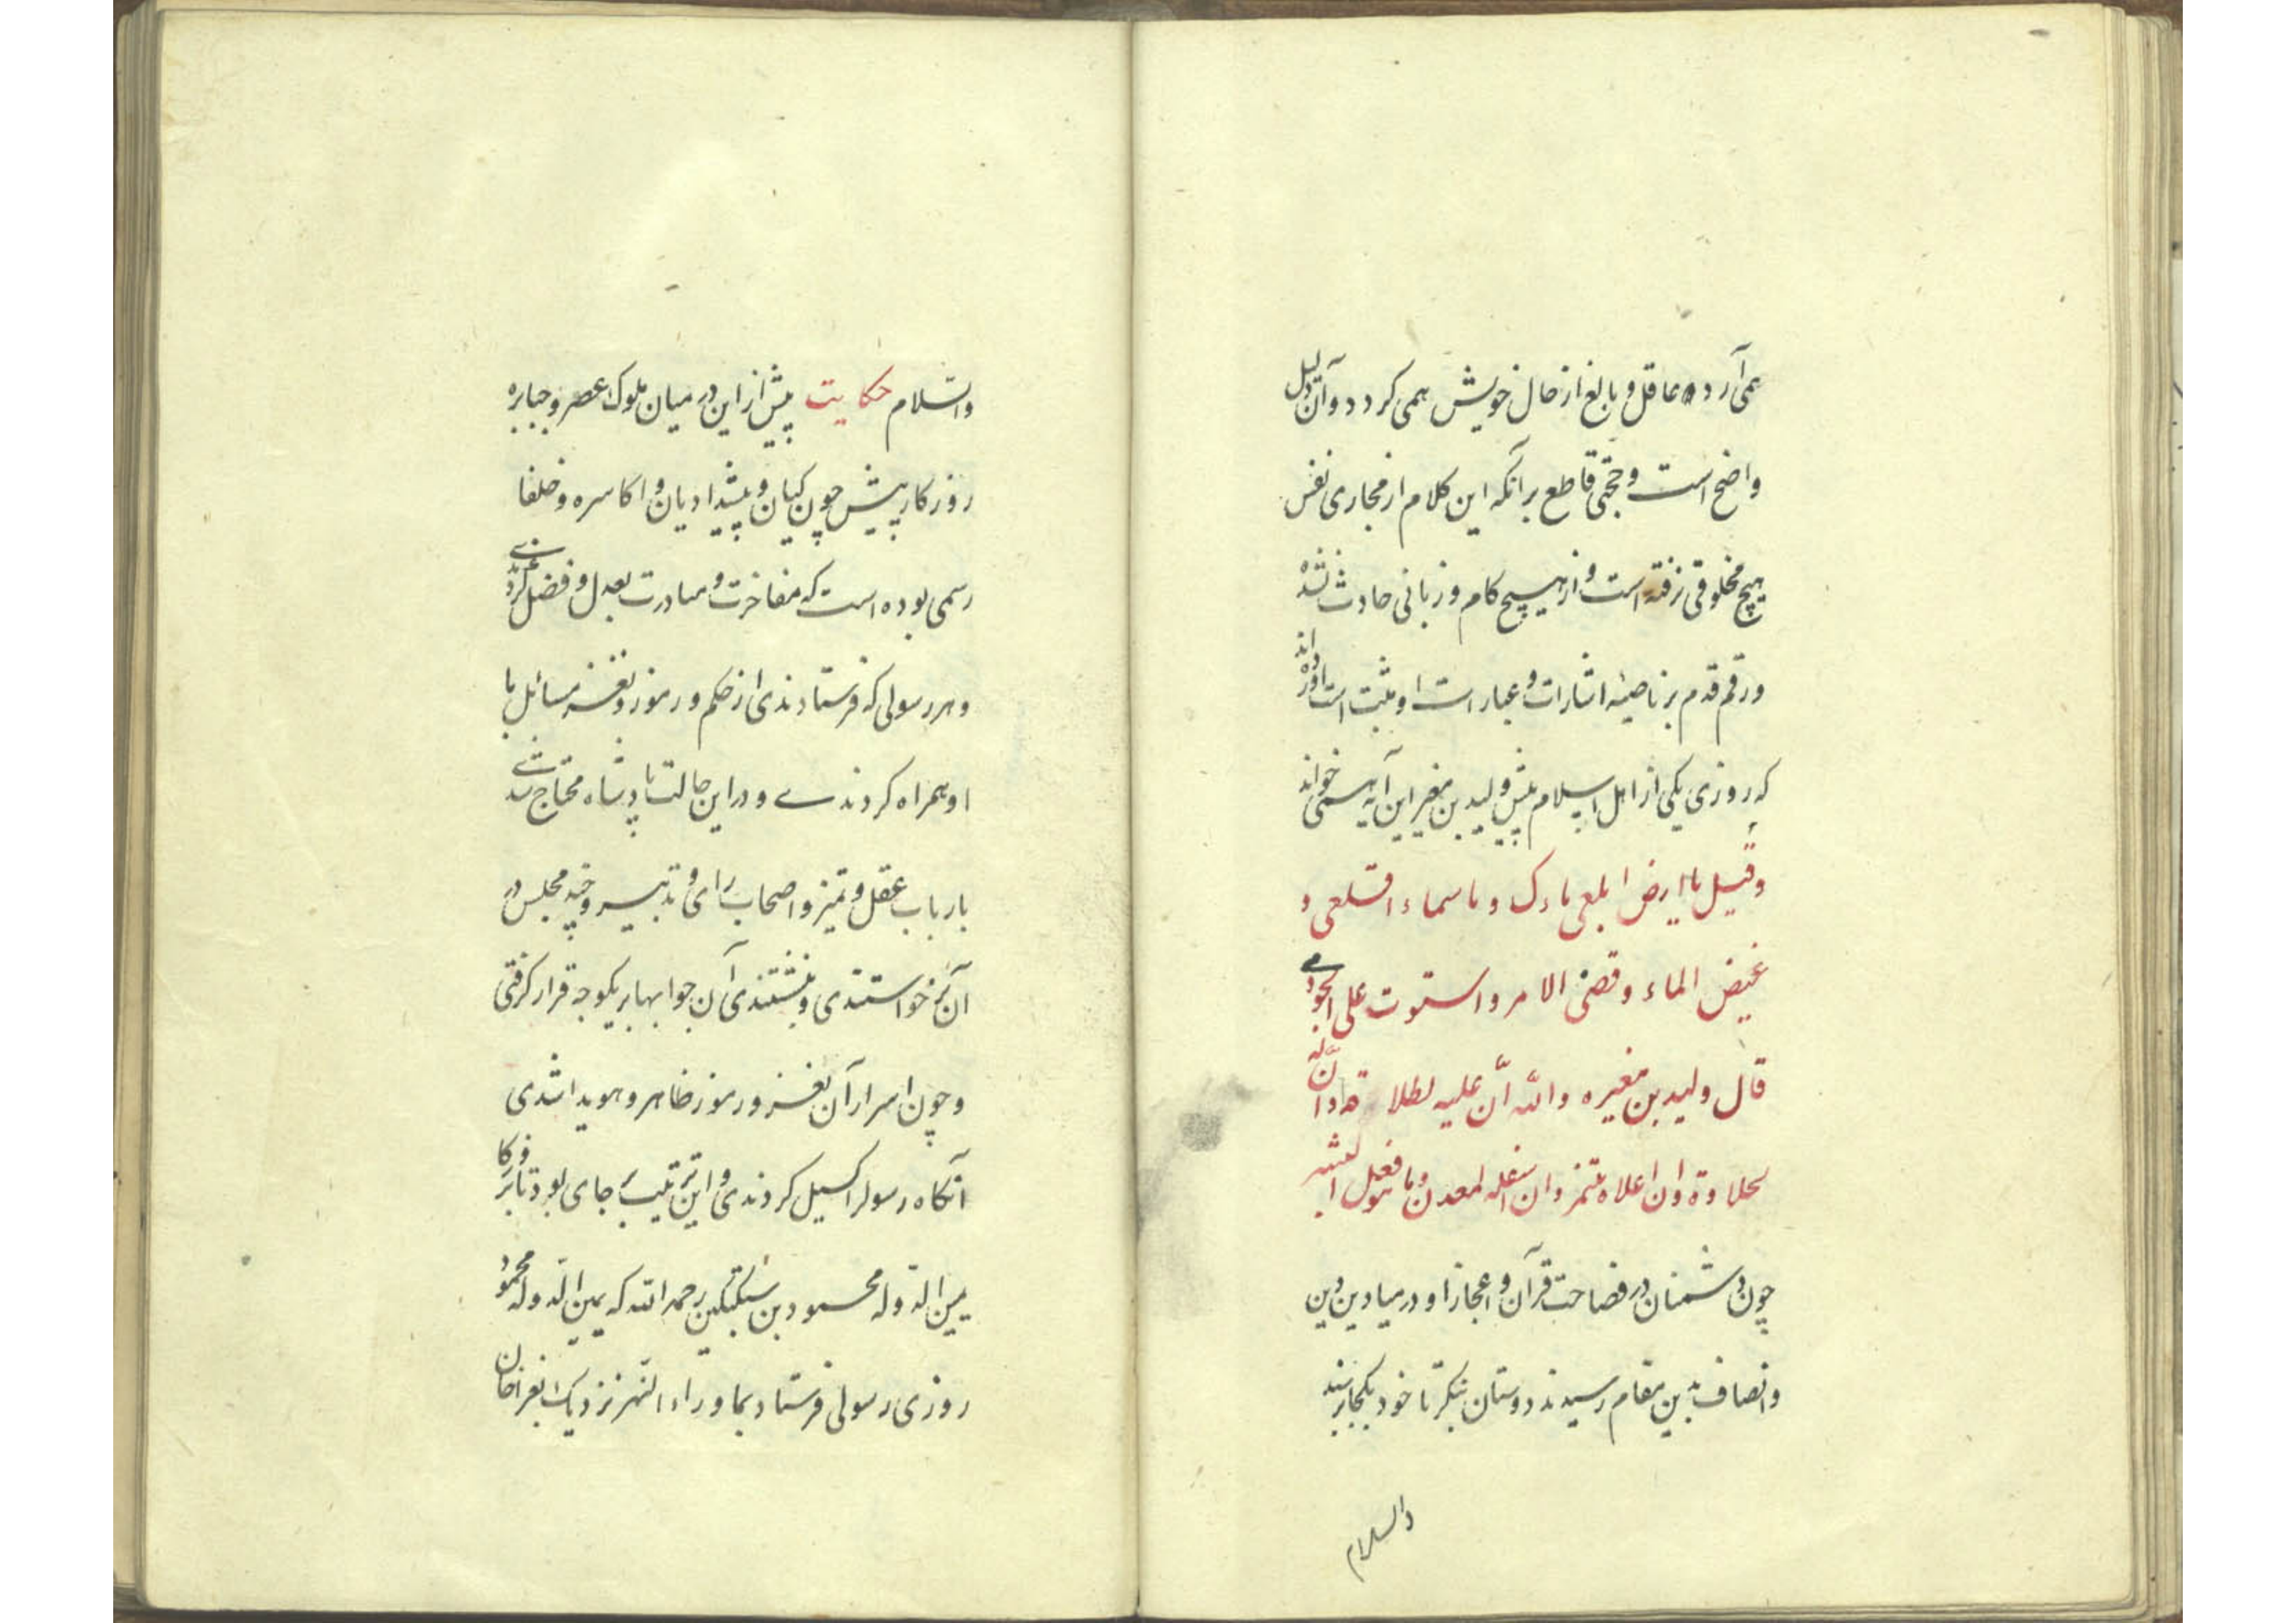 همی آرد و عاقل و بالغ از حال خویش همی کردد و آن دلیل
واضح است و حجتی قاطع بر آنکه این کلام از مجاری نفس
هیچ مخلوقی نرفته است و از هیچ کام و زبانی حادث نشده
و رقم قدم بر ناصیه اشارات و عبارات او مثبت است آورده اند
که روزی یکی از اهل اسلام پیش ولید بن مغیره این آیه همی خواند
وقیل یا ارض ابلعی ماءک و یا سماء اقلعی و
غیض الماء و قضی الامر و استوت علی الجودی
قال ولید بن مغیره والله ان علیه لطلاوة و ان له
لحلاوة و ان اعلاه لمثمر و ان اسفله لمعدن و ما هو قول البشر
چون دشمنان در فصاحت قرآن و اعجاز او در میادین دین
و انصاف بدین مقام رسیدند دوستان بنکر تا خود بکجا رسند
والسلام
والسّلام حکایت پیش از این در میان ملوک عصر و جبابره
روزکار پیش چون کیان و پیشدادیان و اکاسره و خلفا
رسمی بوده است که مفاخرت و مبادرت بعدل و فضل کردندی
و هر رسولی که فرستادندی از حکم و رموز و لغز مسائل با
او همراه کردندے و در این حالت پادشاه محتاج شدے
بارباب عقل و تمیز و اصحاب رای و تدبیر و چند مجلس در
آن بر خواستندی و بنشستندی آن جوابها بر یکوجه قرار کرفتی
و چون اسرار آن لغز و رموز ظاهر و هویدا شدی
آنکاه رسول را کسیل کردندی و این ترتیب بر جای بود تا بروزکار
یمین الدّوله محمود بن سبکتکین رحمه الله که یمین الدّوله محمود
روزی رسولی فرستاد بماوراء النّهر نزدیک بغراخان